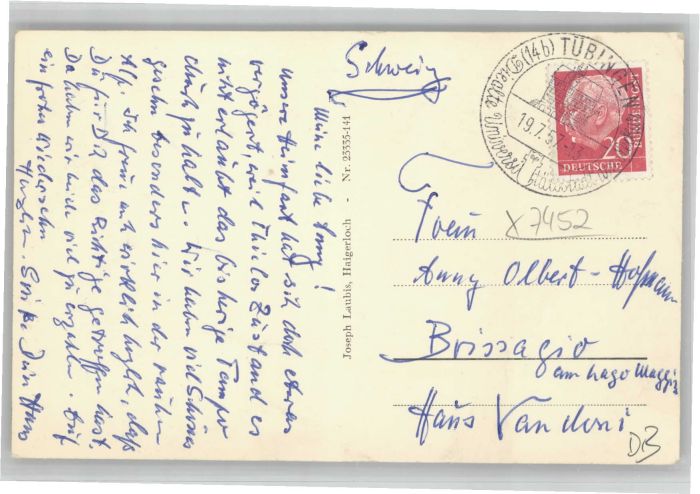 Meine liebe Anny!
Unsere Heimfahrt hat sich doch etwas
verzögert, weil Thielos Zustand es
nicht erlaubt das bisherige Tempo
durchzuhalten. Wir haben viel Schönes
gesehn besonders hier in der rauhen
Alp. Ich freue mich wirklich, daß
Du für Dich das Richtige getroffen hast.
Da haben wir uns viel zu erzählen. Auf
ein frohes Wiedersehn
Herzlich Dein Hans
Joseph Laubis, Haigerloch - Nr. 23335-141
Schweiz
(14b) TÜBINGEN
19.7.5
alte Universitätsstadt
20
DEUTSCHE
BUNDESPOST
Frau
X 7452
Anny Olbert-Hofmann
Brissago
am Lago Maggiore
Haus Vandoni
DB